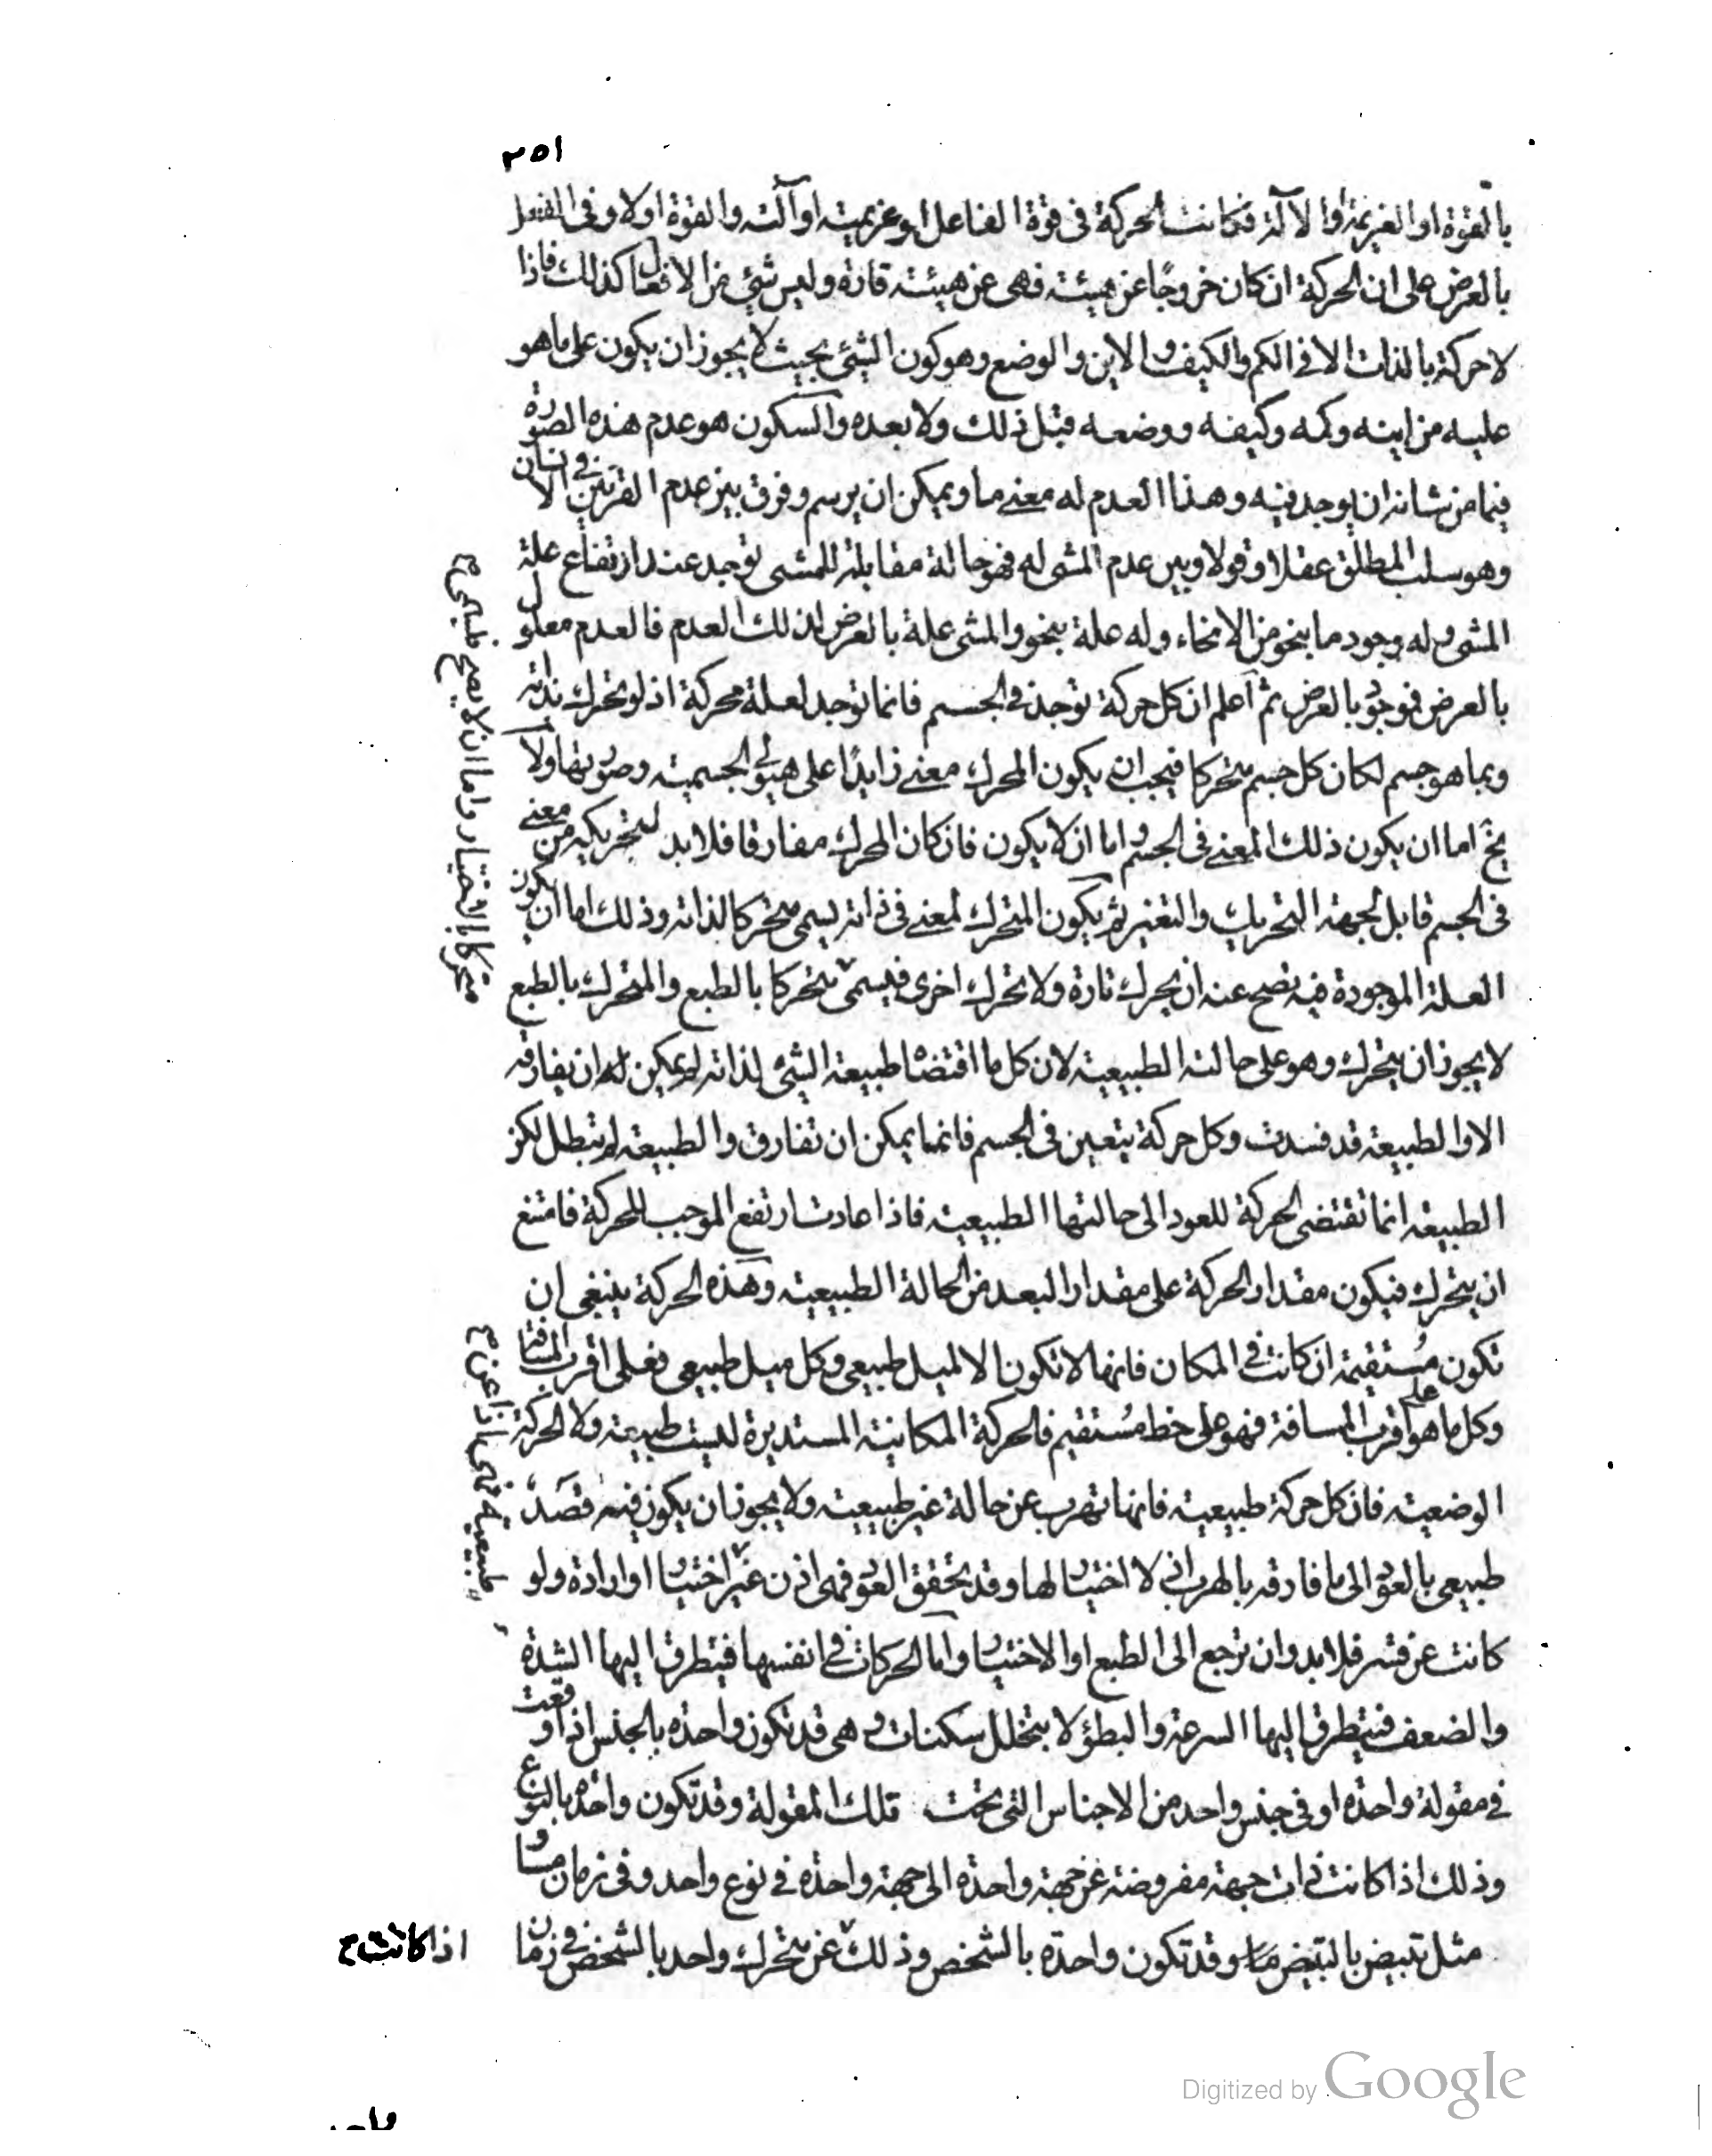 ٢٥١
بالقوة او العزيمة او الالة فكانت الحركة فى قوة الفاعل او عزيمته او آلته والقوة اولا وفى الفعل
بالعرض على ان الحركة ان كان خروجًا عن هيئة فهى عن هيئة قارة وليس شئ من الافعال كذلك فاذا
لا حركة بالذات الا فى الكم والكيف والاين والوضع وهو كون الشئ بحيث لا يجوز ان يكون على ما هو
عليه من اينه وكمه وكيفه ووضعه قبل ذلك ولا بعده والسكون هو عدم هذه الصورة
فيما من شانه ان يوجد فيه وهذا العدم له معنى ما ويمكن ان يرسم وفرق بين عدم القرنين فى الانسان
وهو سلب المطلق عقلا وقولا وبين عدم المشى له فهو حالة مقابلة للمشى توجد عند ارتفاع علة
المشى وله وجود ما بنحو من الانحاء وله علة بنحو والمشى علة بالعرض لذلك العدم فالعدم معلول
بالعرض فموجود بالعرض ثم اعلم ان كل حركة توجد فى الجسم فانما توجد لعلة محركة اذ لو تحرك بذاته
وبما هو جسم لكان كل جسم متحركا فيجب ان يكون المحرك معنى زايدًا على هيولى الجسمية وصورتها ولا
يخ اما ان يكون ذلك المعنى فى الجسم واما ان لا يكون فان كان المحرك مفارقا فلا بد لتحريكه من معنى
فى الجسم قابل لجهة التحريك والتغير ثم يكون المتحرك لمعنى فى ذاته يسمى متحركا لذاته وذلك اما ان يكون
العلة الموجودة فيه تصح عنه ان يحرك تارة ولا تحرك اخرى فيسمى متحركا بالطبع والمتحرك بالطبع
لا يجوز ان يتحرك وهو على حالته الطبيعية لان كل ما اقتضاه طبيعة الشئ لذاته لم يمكن له ان يفارقه
الا والطبيعة قد فسدت وكل حركة يتعين فى الجسم فانما يمكن ان تفارق والطبيعة لم تبطل لكن
الطبيعة انما تقتضى الحركة للعود الى حالتها الطبيعية فاذا عادت ارتفع الموجب للحركة فامتنع
ان يتحرك فيكون مقدار الحركة على مقدار البعد من الحالة الطبيعية وهذه الحركة ينبغى ان
تكون مستقيمة ان كانت فى المكان فانها لا تكون الا لميل طبيعى وكل ميل طبيعى فعلى اقرب المسافة
وكل ما هو على اقرب المسافة فهو على خط مستقيم فالحركة المكانية المستديرة ليست طبيعة ولا الحركة
الوضعية فان كل حركة طبيعية فانها تهرب عن حالة غير طبيعية ولا يجوز ان يكون فيه قصد
طبيعى بالعود الى ما فارقه بالهرب اذ لا اختيار لها وقد تحقق العود فهى اذن غير اختيار او ارادة ولو
كانت عن قسر فلا بد وان ترجع الى الطبع او الاختيار واما الحركات فى انفسها فيتطرق اليها الشدة
والضعف فيتطرق اليها السرعة والبطؤ لا بتخلل سكنات وهى قد تكون واحدة بالجنس اذا وقعت
فى مقولة واحدة او فى جنس واحد من الاجناس التى تحت تلك المقولة وقد تكون واحدة بالنوع
وذلك اذا كانت ذات جهة مفروضة عن جهة واحدة الى جهة واحدة فى نوع واحد وفى زمان مساو
مثل تبييض بالتبيض ما وقد تكون واحدة بالشخص وذلك عن متحرك واحد بالشخص فى زمان
متحركا بالاختيار واما ان لا يصح
طبيعية فهى اذا عن
اذا كانت ح
Digitized by Google